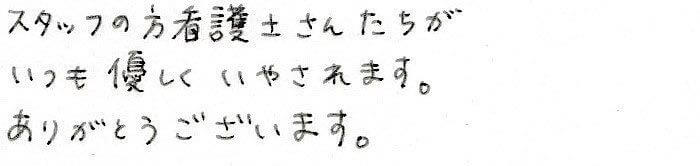 スタッフの方看護士さんたちが
いつも優しくいやされます。
ありがとうございます。